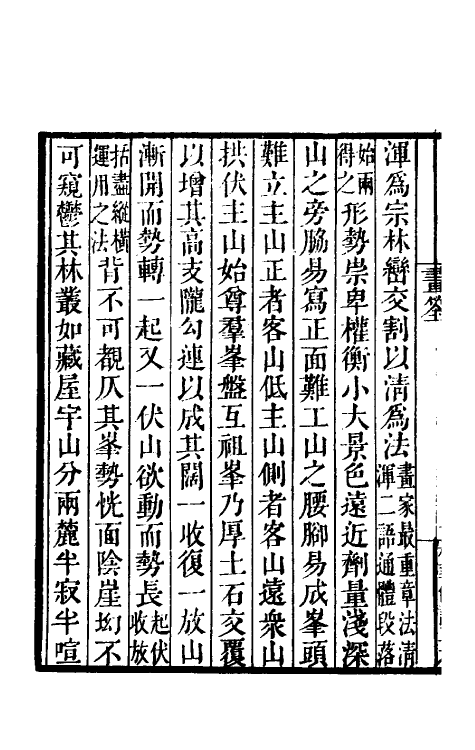 畫筌
渾爲宗林巒交割以清爲法畫家最重章法清渾二語通體段落
始兩得之形勢崇卑權衡小大景色遠近劑量淺深
山之旁脇易寫正面難工山之腰腳易成峯頭
難立主山正者客山低主山側者客山遠衆山
拱伏主山始尊羣峯盤互祖峯乃厚土石交覆
以增其高支隴勾連以成其闊一收復一放山
漸開而勢轉一起又一伏山欲動而勢長起伏收放
括盡縱橫運用之法背不可覩仄其峯勢恍面陰崖㘭不
可窺鬱其林叢如藏屋宇山分兩麓半寂半喧